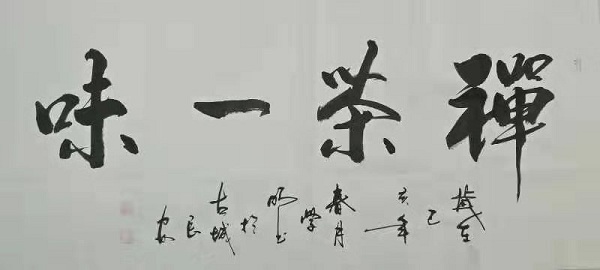 禪茶一味
歲在己亥年春月學明書於古城長安